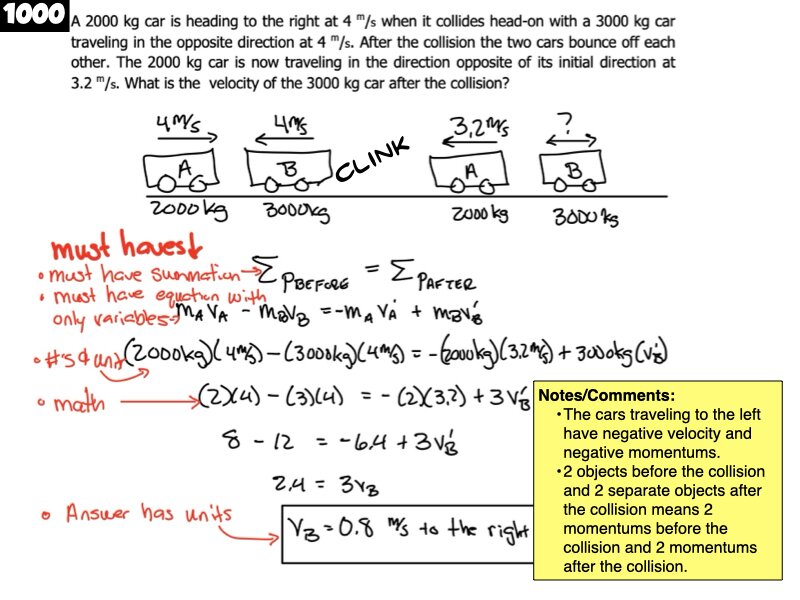 1000
A 2000 kg car is heading to the right at 4 m/s when it collides head-on with a 3000 kg car
traveling in the opposite direction at 4 m/s. After the collision the two cars bounce off each
other. The 2000 kg car is now traveling in the direction opposite of its initial direction at
3.2 m/s. What is the velocity of the 3000 kg car after the collision?
4m/s 4m/s 3.2m/s ?
A B CLINK A B
2000kg 3000kg 2000kg 3000kg
must haves!
• must have summation → Σ PBEFORE = Σ PAFTER
• must have equation with
only variables → mAVA - mBVB = -mAVA' + mBVB'
• #'s & unit (2000kg)(4m/s) - (3000kg)(4m/s) = -(2000kg)(3.2m/s) + 3000kg(VB')
• math → (2)(4) - (3)(4) = -(2)(3.2) + 3VB'
8 - 12 = -6.4 + 3VB'
2.4 = 3VB
• Answer has units
VB = 0.8 m/s to the right
Notes/Comments:
•The cars traveling to the left
have negative velocity and
negative momentums.
•2 objects before the collision
and 2 separate objects after
the collision means 2
momentums before the
collision and 2 momentums
after the collision.